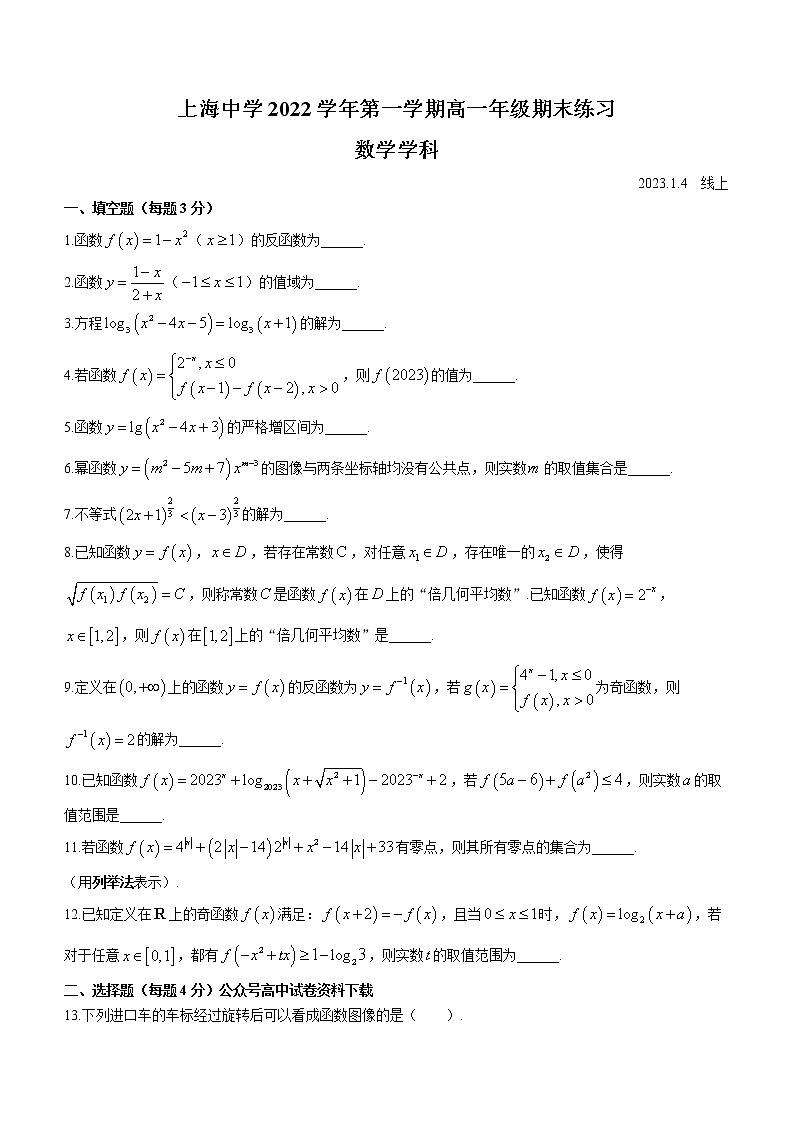 上海中学 2022 学年第一学期高一年级期末练习
数学学科
2023.1.4 线上
一、填空题（每题 3 分）
1.函数 f(x)=1-x²（x≥1）的反函数为______.
2.函数 y=(1-x)/(2+x)（-1≤x≤1）的值域为______.
3.方程 log₃(x²-4x-5)=log₃(x+1) 的解为______.
4.若函数 f(x)={2^(-x), x≤0; f(x-1)-f(x-2), x>0，则 f(2023) 的值为______.
5.函数 y=lg(x²-4x+3) 的严格增区间为______.
6.幂函数 y=(m²-5m+7)x^(m-3) 的图像与两条坐标轴均没有公共点，则实数 m 的取值集合是______.
7.不等式 (2x+1)^(2/3)<(x-3)^(2/3) 的解为______.
8.已知函数 y=f(x)，x∈D，若存在常数 C，对任意 x₁∈D，存在唯一的 x₂∈D，使得
√(f(x₁)f(x₂))=C，则称常数 C 是函数 f(x) 在 D 上的“倍几何平均数”.已知函数 f(x)=2^(-x)，
x∈[1,2]，则 f(x) 在[1,2]上的“倍几何平均数”是______.
9.定义在(0,+∞)上的函数 y=f(x) 的反函数为 y=f⁻¹(x)，若 g(x)={4^x-1, x≤0; f(x), x>0 为奇函数，则
f⁻¹(x)=2 的解为______.
10.已知函数 f(x)=2023^x+log₂₀₂₃(x+√(x²+1))-2023^(-x)+2，若 f(5a-6)+f(a²)≤4，则实数 a 的取
值范围是______.
11.若函数 f(x)=4^|x|+(2|x|-14)2^|x|+x²-14|x|+33 有零点，则其所有零点的集合为______.
（用列举法表示）.
12.已知定义在 R 上的奇函数 f(x) 满足：f(x+2)=-f(x)，且当 0≤x≤1 时，f(x)=log₂(x+a)，若
对于任意 x∈[0,1]，都有 f(-x²+tx)≥1-log₂3，则实数 t 的取值范围为______.
二、选择题（每题 4 分）公众号高中试卷资料下载
13.下列进口车的车标经过旋转后可以看成函数图像的是（ ）.